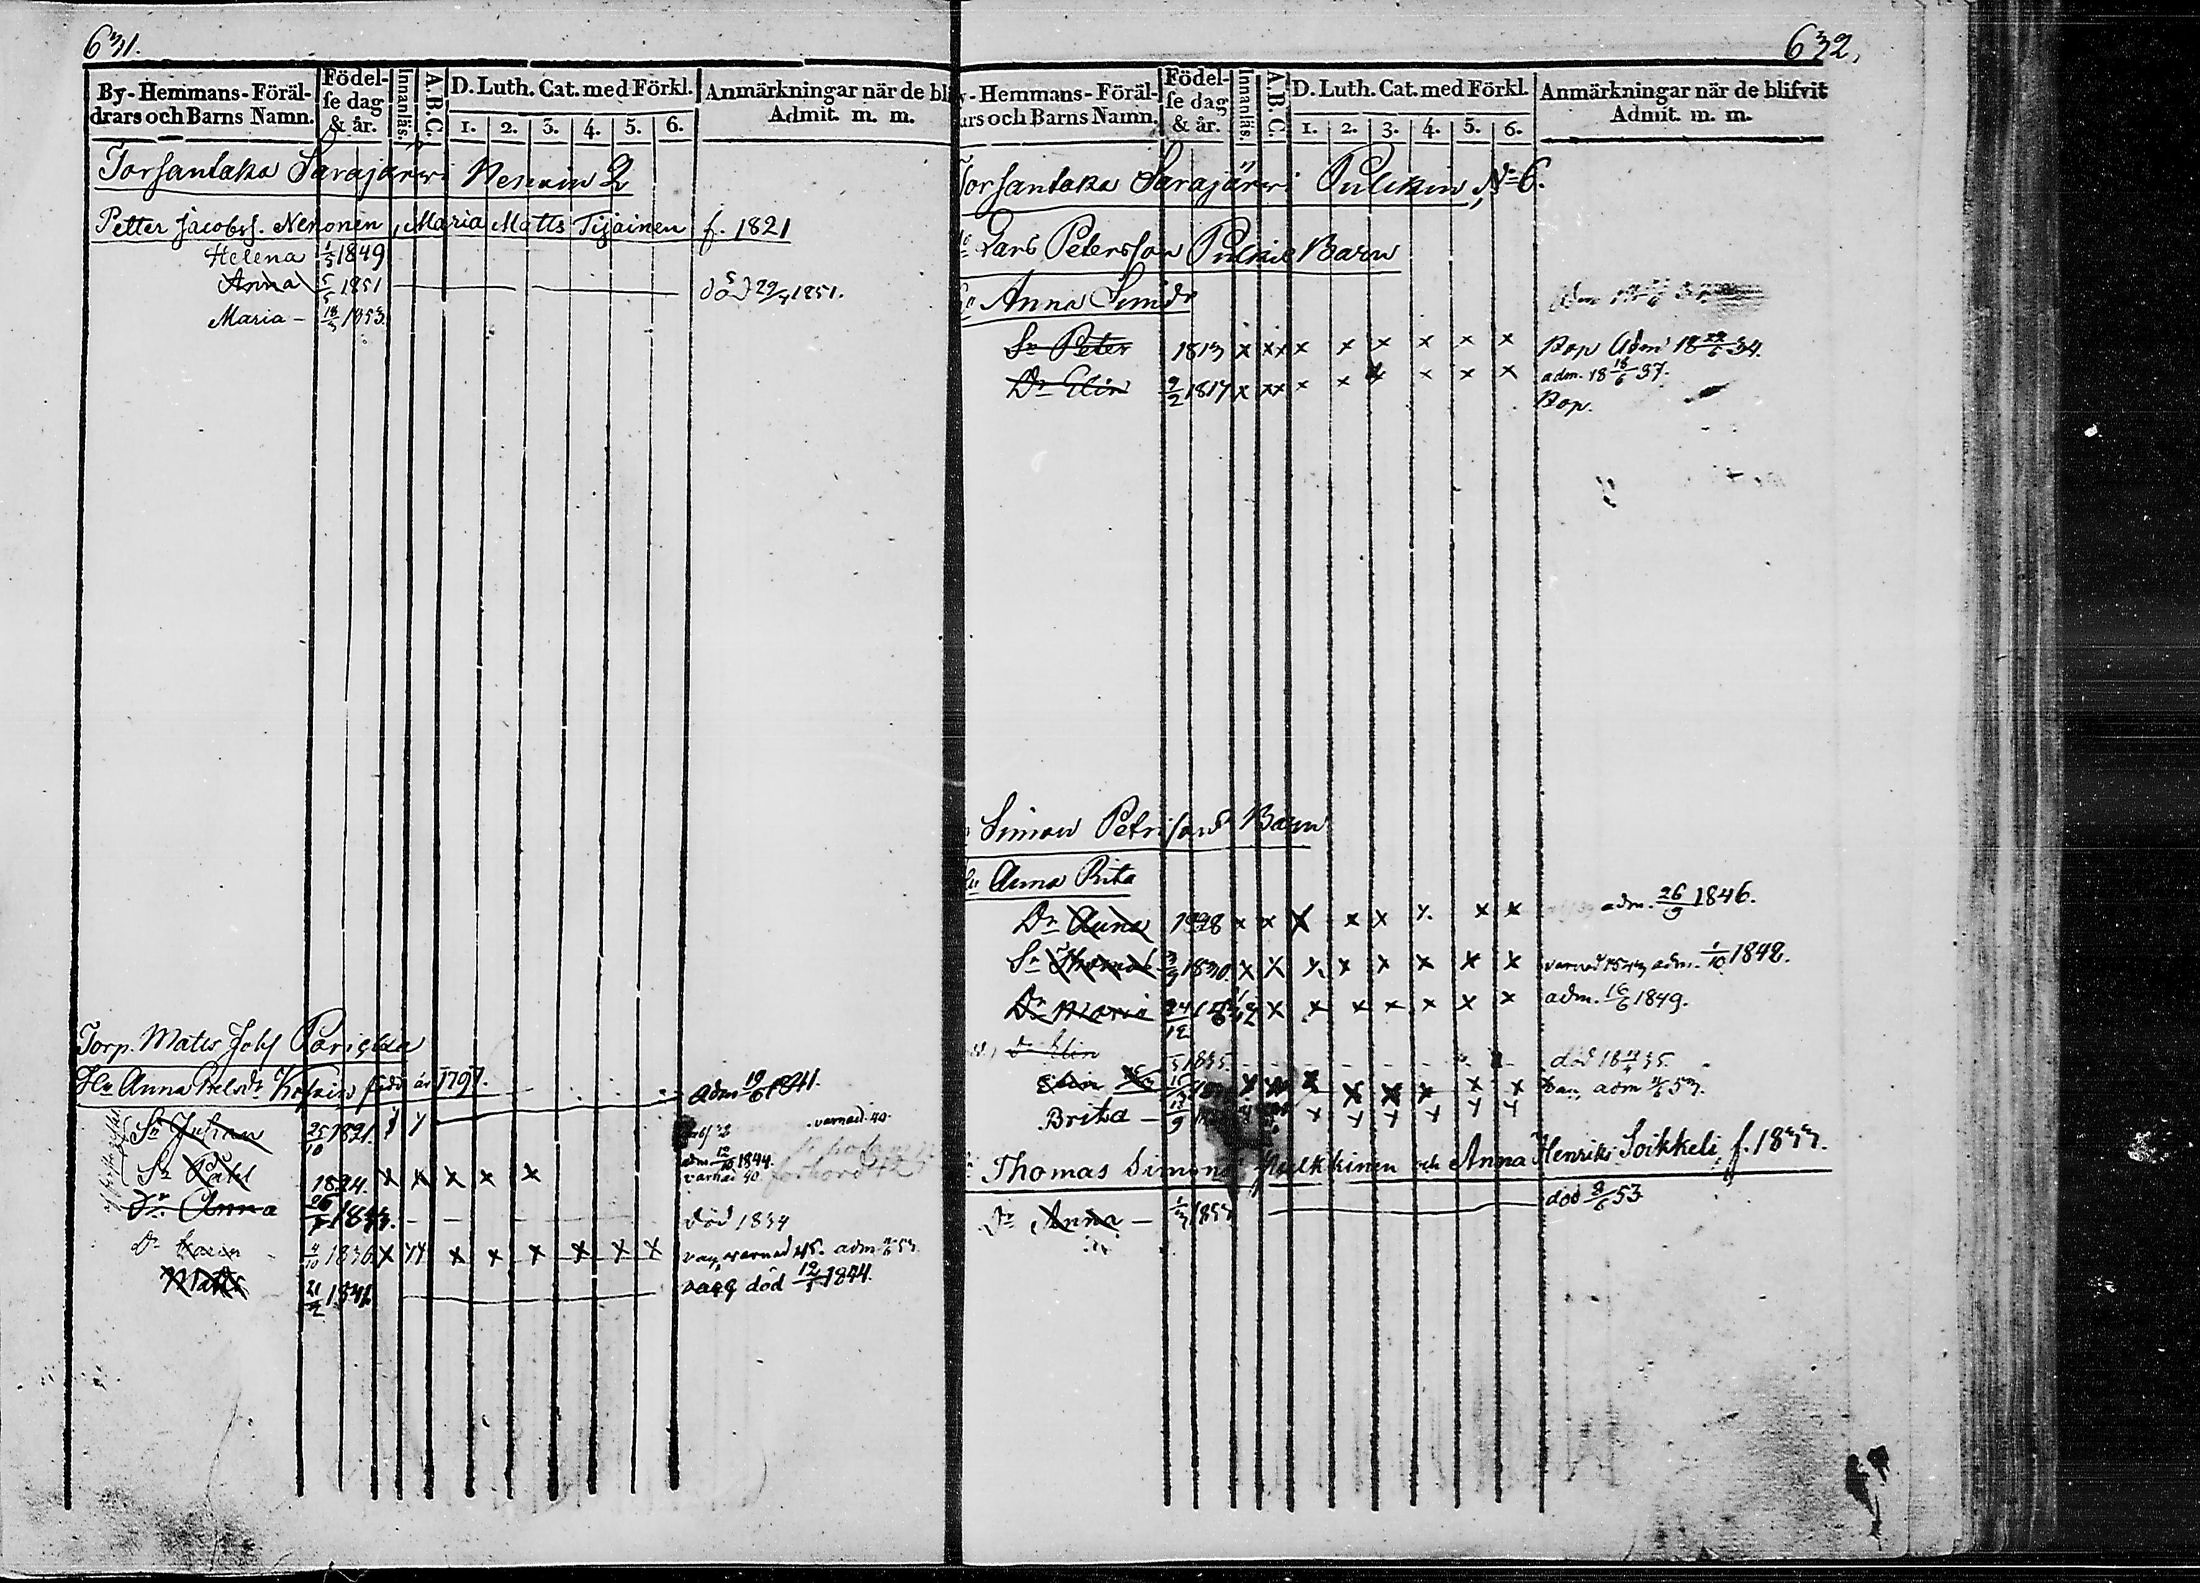 631.
By-Hemmans-Föräl-drars och Barns Namn. Födel-se dag & år. Innanläs. A.B.C. D. Luth. Cat. med Förkl. 1. 2. 3. 4. 5. 6. Anmärkningar när de bli Admit. m. m.
Torsantaka Sarajärwi 2
Petter Jacobss. Nenonen, Maria Matts Tijainen f. 1821
Helena 1/3 1849
Anna 5/5 1851 död 29/5 1851.
Maria - 18/3 1853
Torp. Matts Johs
Hu Anna född år 1797. adm 19/6 1841.
Sn Johan 25/10 1821. x x varnad. 40.
Sn 1824. x x x x x adm 12/10 1844. varnad 40.
Dr Anna 26 död 1834
Dr Karin 4/10 1836 x xx x x x x x x varnad 45. adm 53
Matts 21/2 1841 död 12/1 1844.
632.
y-Hemmans-Föräl-ars och Barns Namn. Födel-se dag & år. Innanläs. A.B.C. D. Luth. Cat. med Förkl. 1. 2. 3. 4. 5. 6. Anmärkningar när de blifvit Admit. m. m.
Torsantaka Sarajärwi Pulkin, No 6.
Lars Petersson Pulkis Barn
Anna Simdr
Sn Peter 1813 x xx x x x x x x Kop Adm 18 29/6 34.
Dr Elin 9/2 1817 x xx x x x x x x adm. 18 18/6 37.
Kop.
Simon Petrisons Barn
Hu Anna Rita
Dr Anna 1828 x x x x x x x x adm. 26/9 1846.
Sn Thomas 3/9 1830. x x x x x x x x adm. 1/10 1842.
Dr Maria 24/12 x x x x x x x adm. 16/6 1849.
dr Elin 1835 död 18 35.
Elin x x x x x x x x adm 53.
Brita - 9 x x x x x x
Thomas Simons Pulkkinen och Anna Henriks Soikkeli, f. 1833.
Dr Anna - 1/3 1853 död 9/6 53